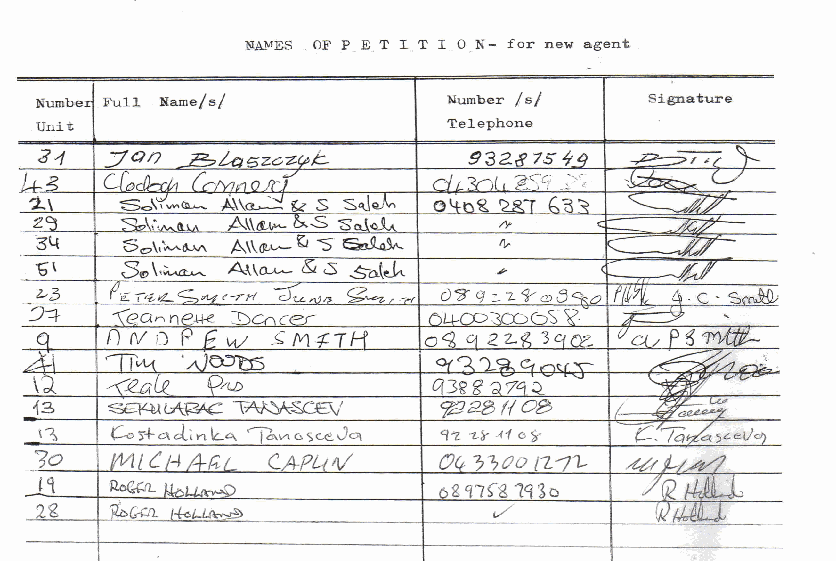 NAMES OF P E T I T I O N- for new agent
Number Unit Full Name/s/ Number /s/ Telephone Signature
31 Jan Blaszczyk 93287549
43 Clodagh
21 Soliman Allam & S Saleh 0408 287 633
29 Soliman Allam & S Saleh "
34 Soliman Allam & S Saleh "
51 Soliman Allam & S Saleh "
23 PETER SMITH JUNE SMITH J. C. Smith
Jeannette Dancer 0400300058
9 ANDREW SMITH 0892283902 a P Smith
41 TIM WOODS 93289045
12 Teale 93882792
13 SEKULARAC TANASCEV 92281108
13 Kostadinka Tanasceva 92 28 1108 K. Tanasceva
30 MICHAEL CAPLIN 0433001272
19 ROGER HOLLAND 0897587930 R Holland
28 ROGER HOLLAND ✓ R Holland